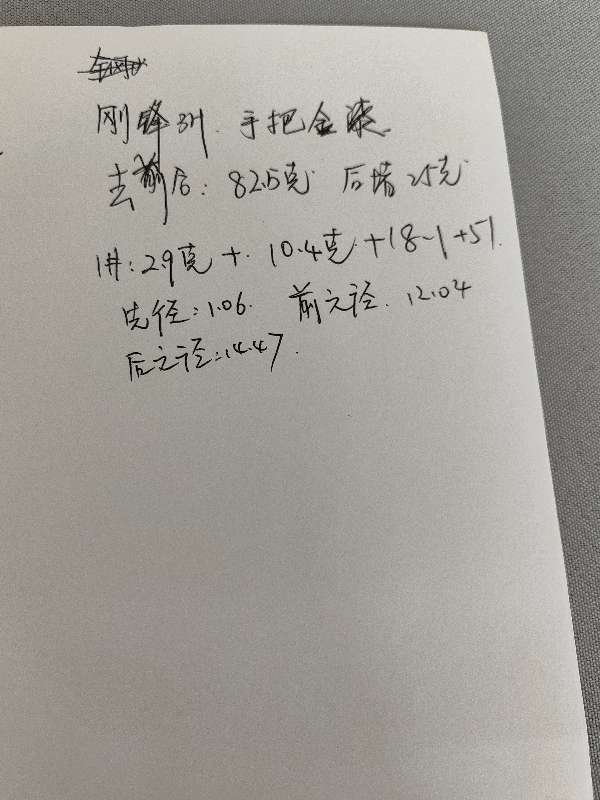 刚锋3H. 手把金漆.
去前后: 82.5克 后堵25克
1#: 2.9克 + 10.4克 + 18-1+51.
先径: 1.06. 前之径. 12.04
后之径: 14.47.